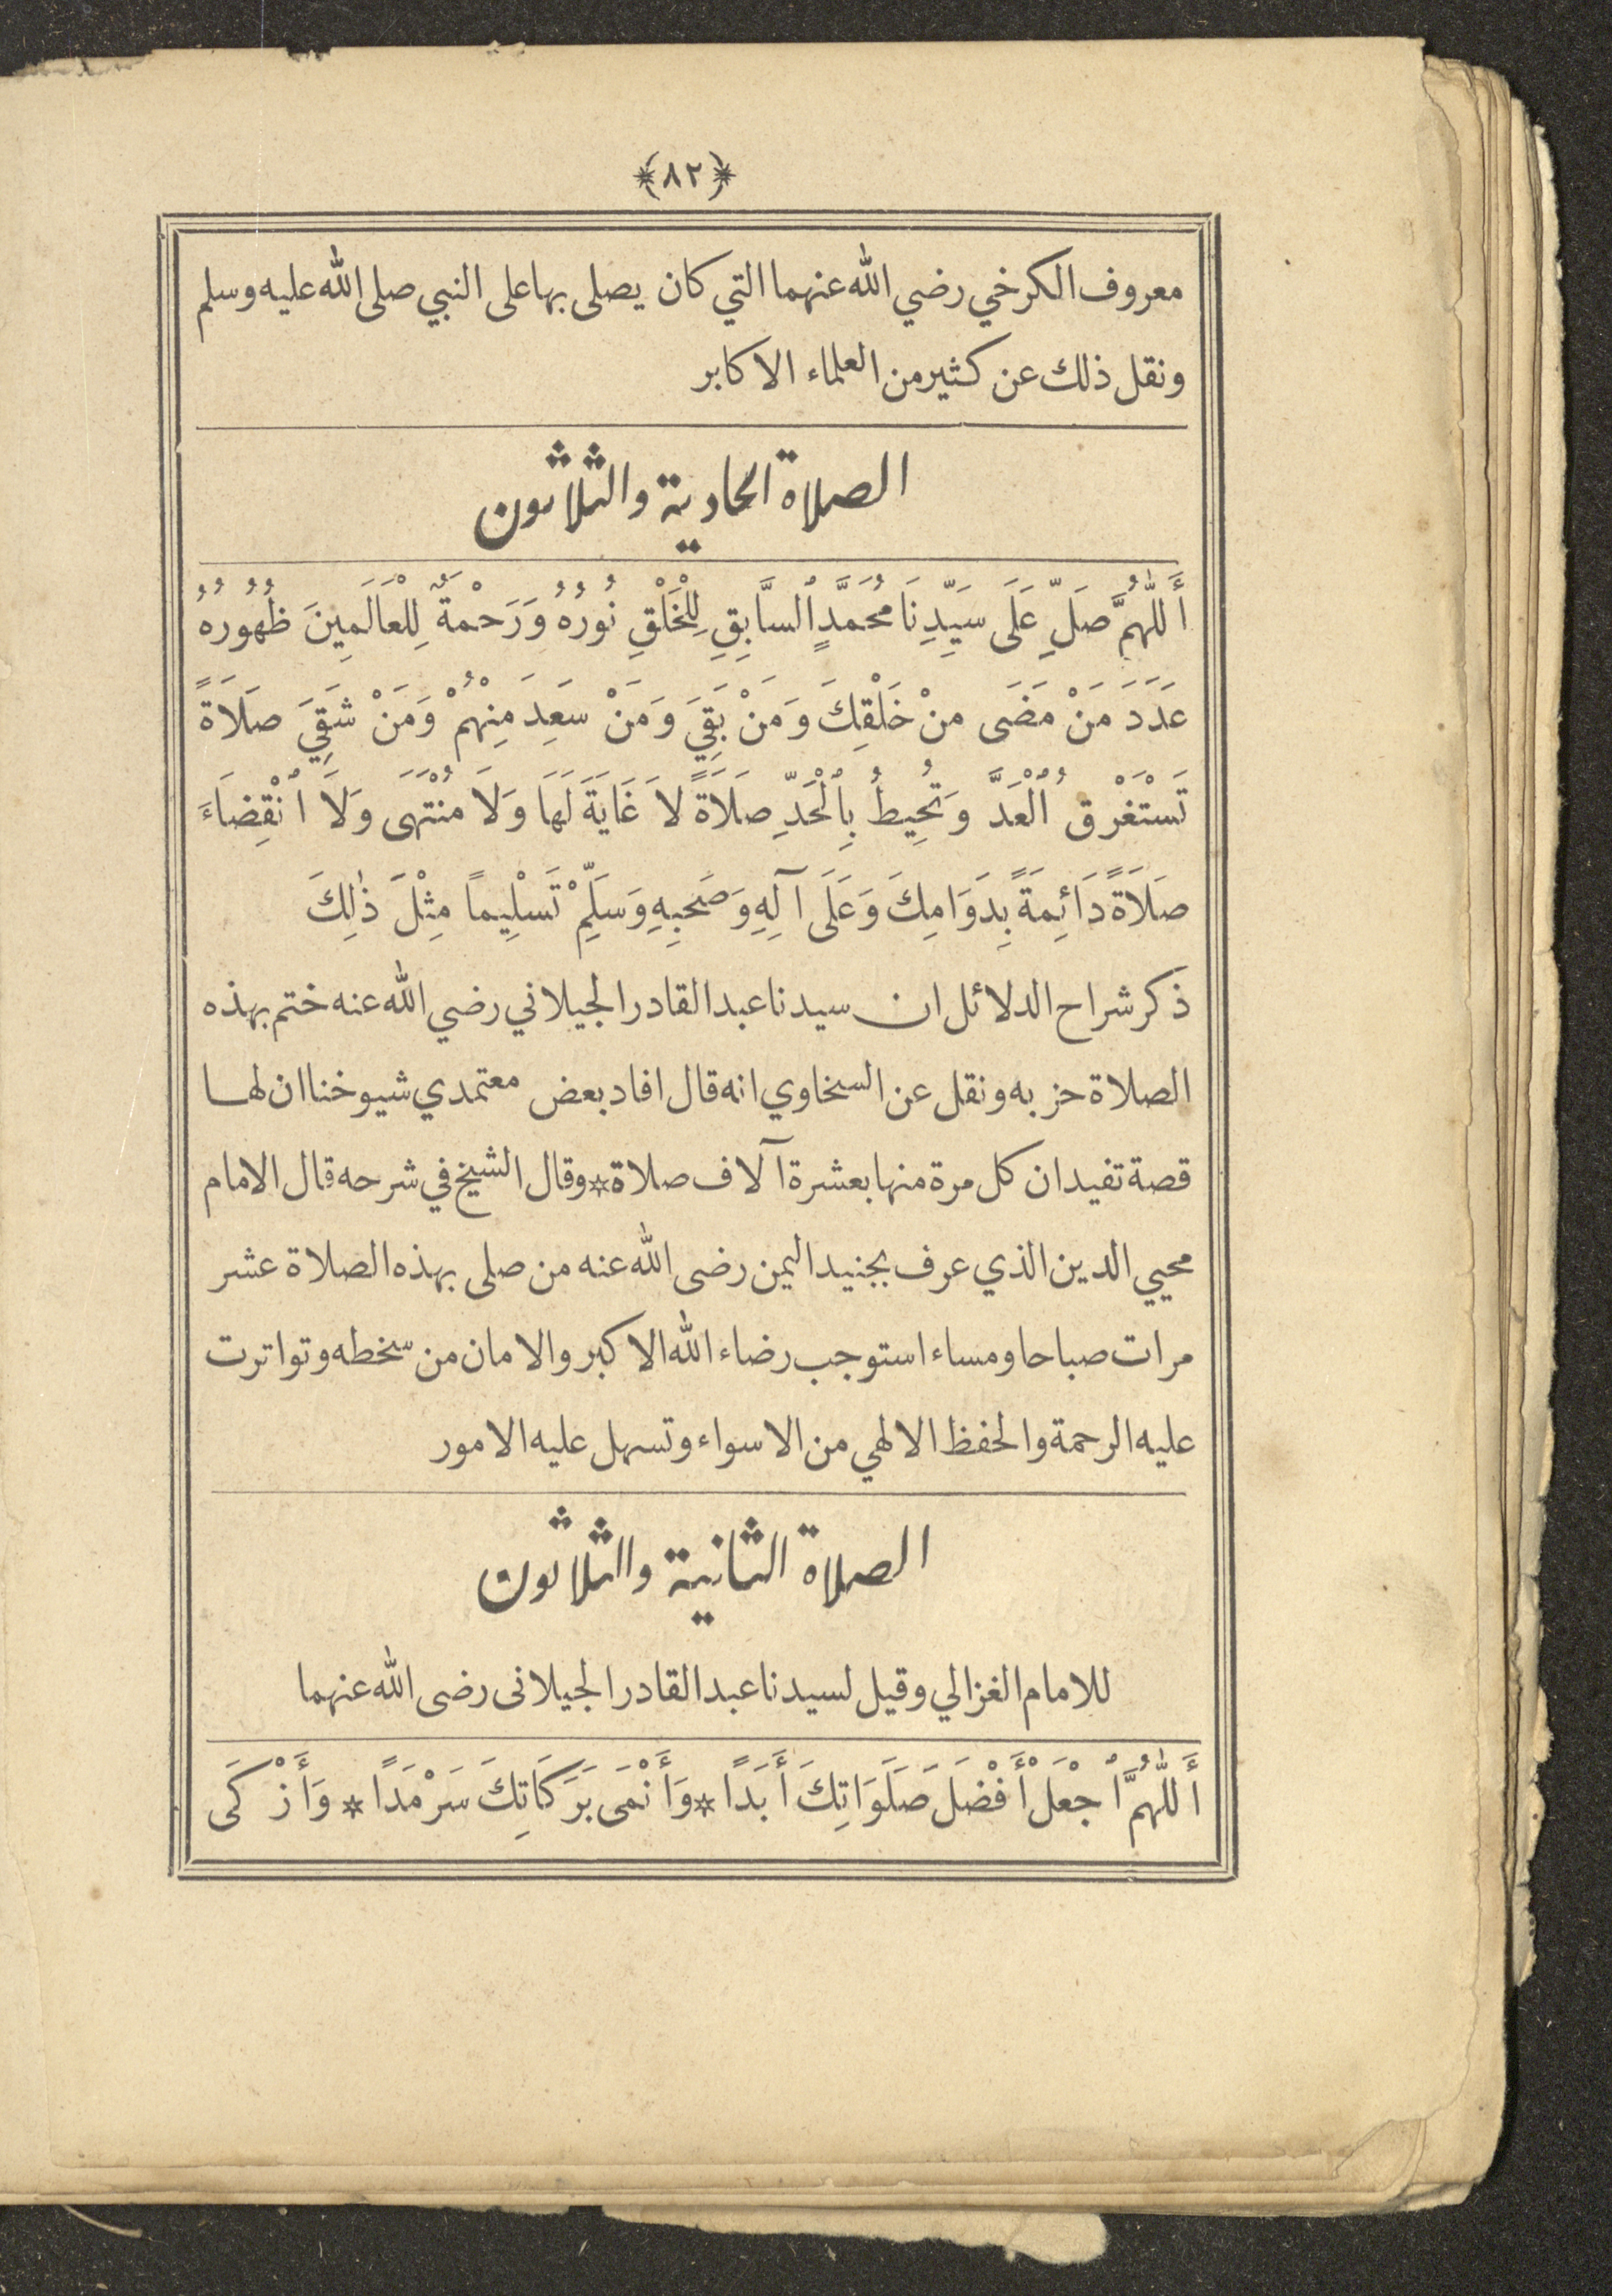 ﴿٨٢﴾
معروف الكرخي رضي الله عنهما التي كان يصلى بها على النبي صلى الله عليه وسلم
ونقل ذلك عن كثير من العلماء الاكابر
الصلاة الحادية والثلاثون
أَللّٰهُمَّ صَلِّ عَلَى سَيِّدِنَا مُحَمَّدٍ ٱلسَّابِقِ لِلْخَلْقِ نُورُهُ وَرَحْمَةٌ لِلْعَالَمِينَ ظُهُورُهُ
عَدَدَ مَنْ مَضَى مِنْ خَلْقِكَ وَمَنْ بَقِيَ وَمَنْ سَعِدَ مِنْهُمْ وَمَنْ شَقِيَ صَلَاةً
تَسْتَغْرِقُ ٱلْعَدَّ وَتُحِيطُ بِٱلْحَدِّ صَلَاةً لاَ غَايَةَ لَهَا وَلاَ مُنْتَهَى وَلاَ ٱنْقِضَاءَ
صَلَاةً دَائِمَةً بِدَوَامِكَ وَعَلَى آلِهِ وَصَحْبِهِ وَسَلِّمْ تَسْلِيماً مِثْلَ ذٰلِكَ
ذكر شراح الدلائل ان سيدنا عبد القادر الجيلاني رضي الله عنه ختم بهذه
الصلاة حزبه ونقل عن السخاوي انه قال افاد بعض معتمدي شيوخنا ان لها
قصة تفيد ان كل مرة منها بعشرة آلاف صلاة * وقال الشيخ في شرحه قال الامام
محيي الدين الذي عرف بجنيد اليمن رضى الله عنه من صلى بهذه الصلاة عشر
مرات صباحا ومساء استوجب رضاء الله الاكبر والامان من سخطه وتواترت
عليه الرحمة والحفظ الالهي من الاسواء وتسهل عليه الامور
الصلاة الثانية والثلاثون
للامام الغزالي وقيل لسيدنا عبد القادر الجيلانى رضى الله عنهما
أَللّٰهُمَّ ٱجْعَلْ أَفْضَلَ صَلَوَاتِكَ أَبَدًا * وَأَنْمَى بَرَكَاتِكَ سَرْمَدًا * وَأَزْكَى